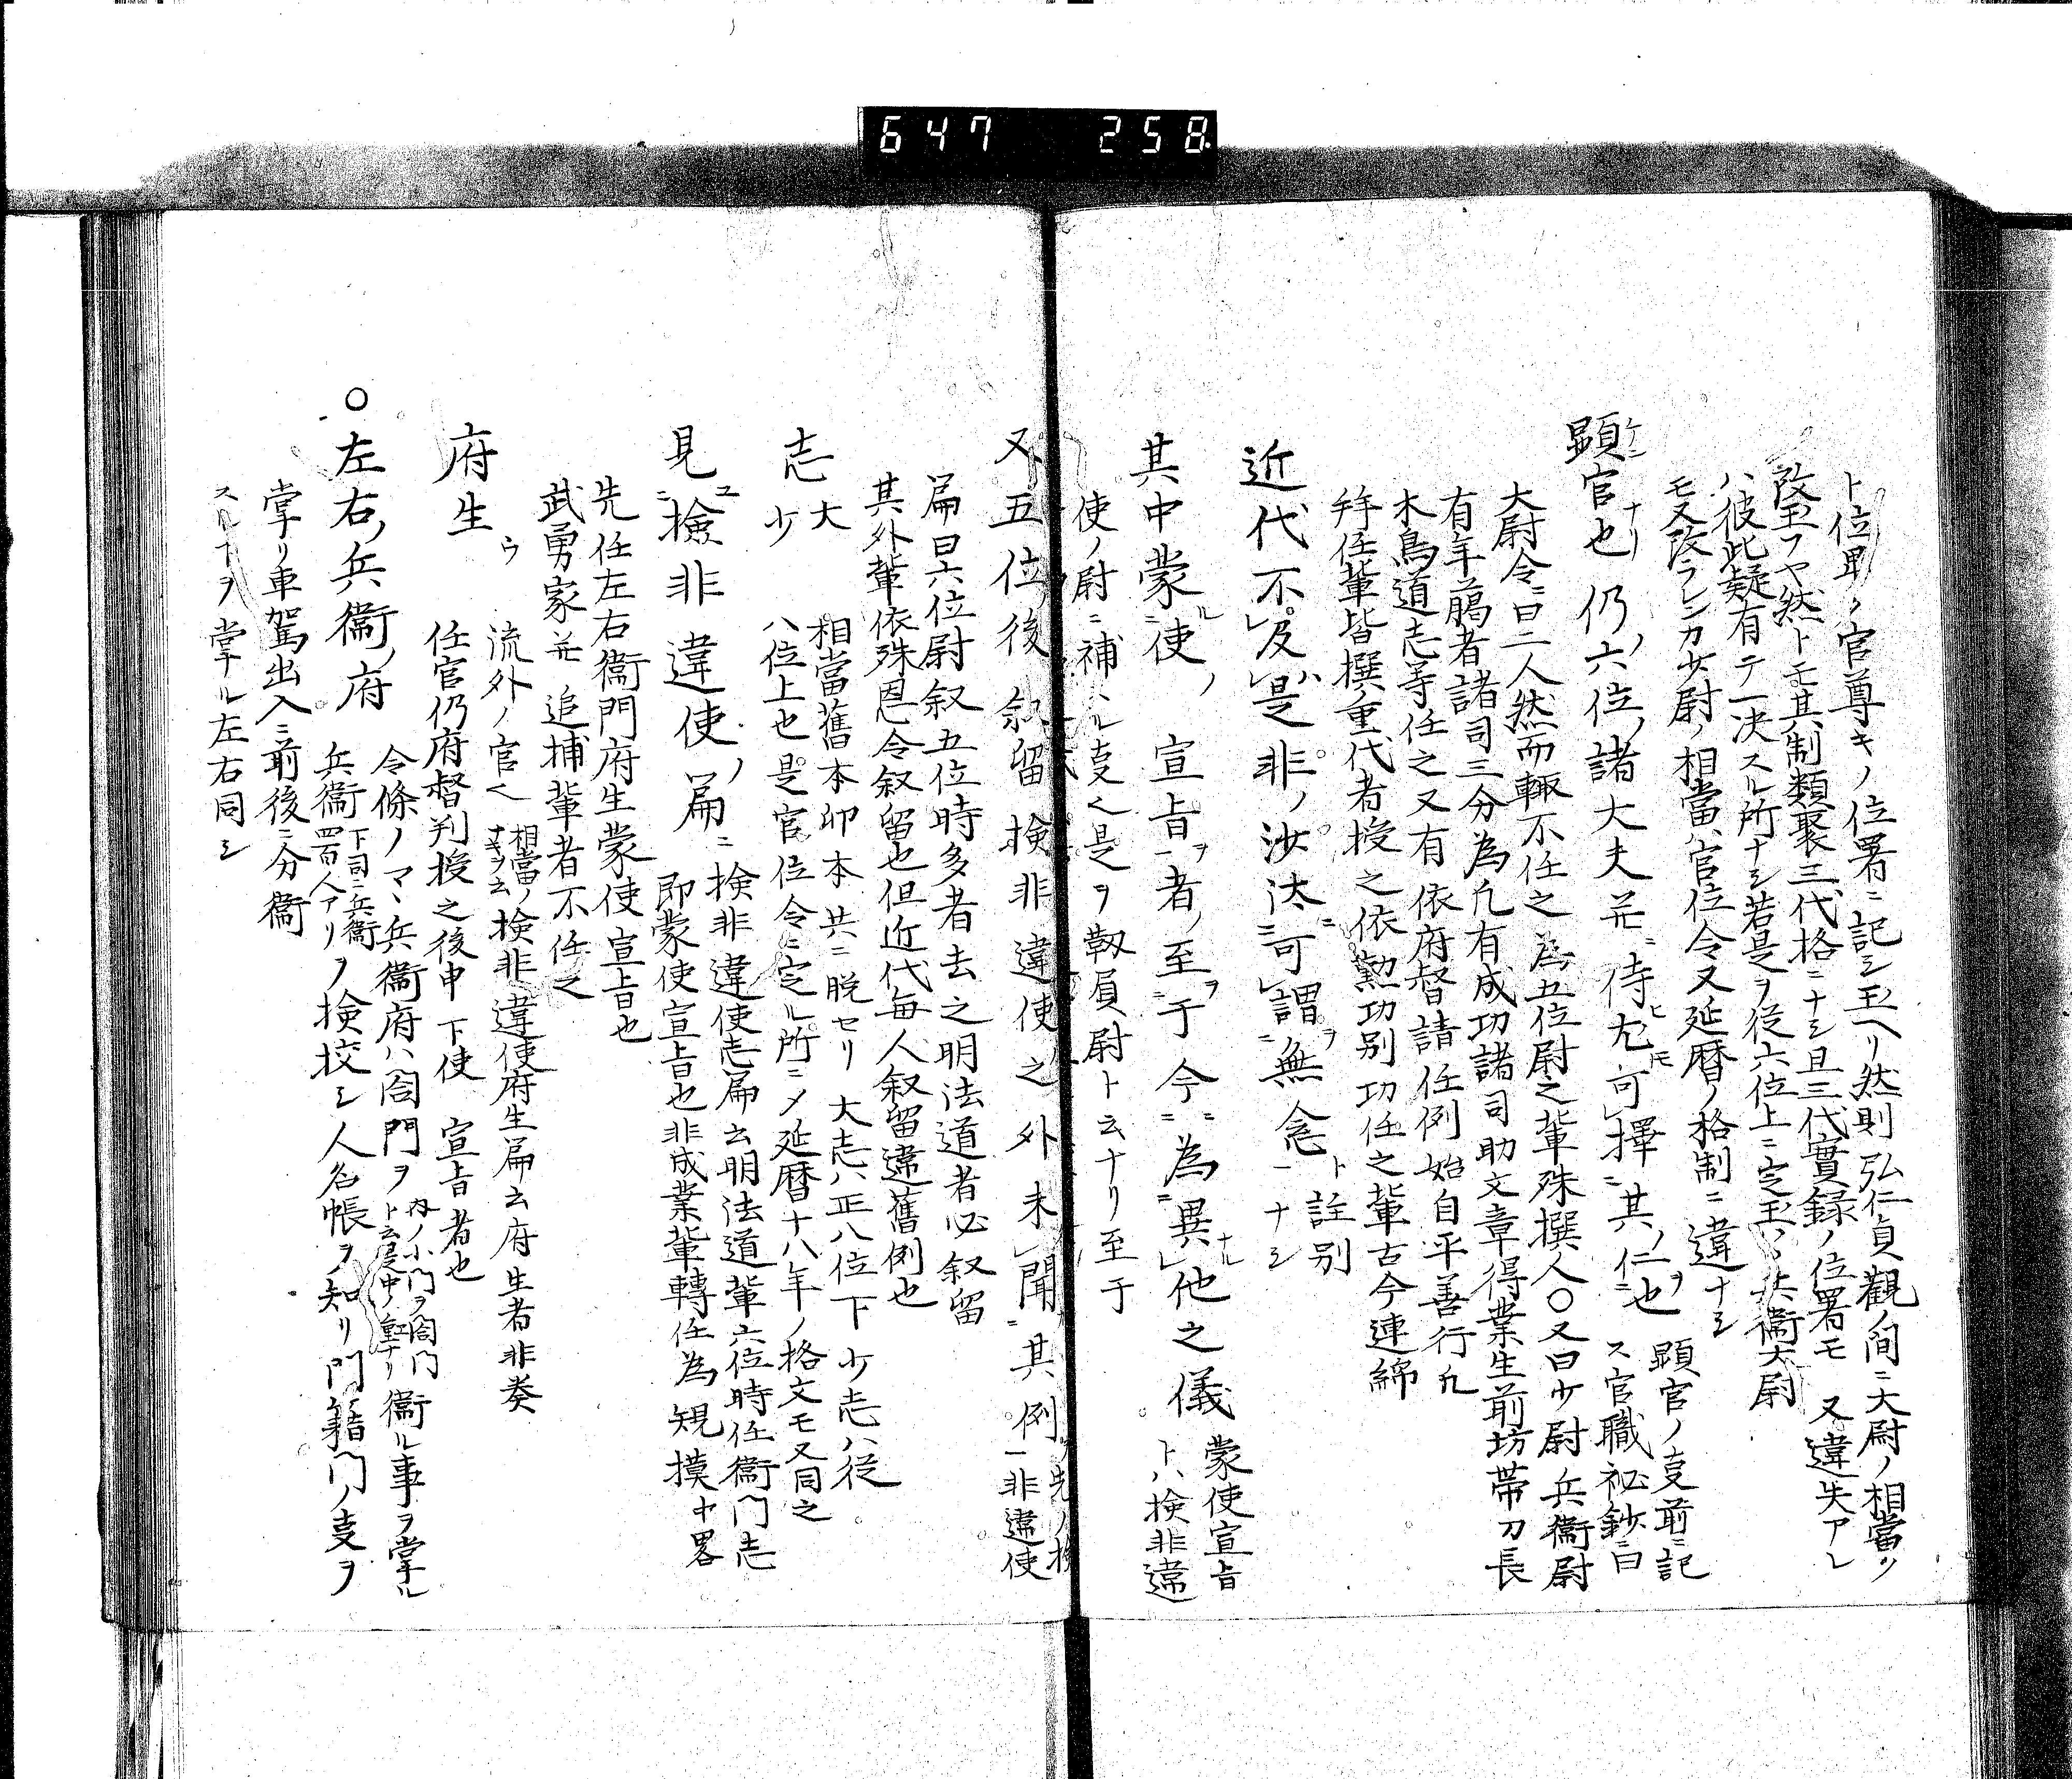 647 258
ト位卑ク官尊キノ位署ニ記シ玉ヘリ然則弘仁貞觀ノ間ニ大尉ノ相當ヲ
改玉フヤ然トモ其制類聚三代格ニナシ且三代實録ノ位署モ又違失アレ
ハ彼此疑有テ一決スル所ナシ若是ヲ従六位上ニ定玉ハ丶兵衞大尉
モ又改ラレンカ少尉ノ相當ハ官位令又延暦ノ格制ニ違ナシ
顕官也仍六位ノ諸大夫并ニ侍尤可擇其ノ仁也
顕官ノ叓前ニ記
ス官職祕鈔ニ曰
大尉令ニ曰二人然而輙不任之為五位尉之輩殊撰人〇又曰少尉兵衞尉
有年﨟者諸司三分為凢有成功諸司助文章得業生前坊帯刀長
木鳥道志等任之又有依府督請任例始自平善行凢
拜任輩皆撰重代者授之依勲功別功任之輩古今連綿
近代不及是非ノ沙汰可謂無念
ト註別
ナシ
其中蒙使ノ宣旨者至于今為異他之儀
蒙使宣旨
トハ検非違
使ノ尉ニ補ハル叓く是ヲ靱屓尉ト云ナリ至于
又五位後叙留検非違使之外未聞其例
非違使
扁曰六位尉叙五位時多者去之明法道者必叙留
其外輩依殊恩令叙留也但近代毎人叙留違舊例也
志
大
少
相當舊本印本共ニ脱セリ大志ハ正八位下少志ハ従
八位上也是官位令ニ定ル所ニメ延暦十八年ノ格文モ又同之
見検非違使ノ扁
検非違使志扁云明法道輩六位時任衞門志
即蒙使宣旨也非成業輩轉任為規摸中畧
先任左右衞門府生蒙使宣旨也
武勇家并追捕輩者不任之
府生
流外ノ官く相當ノナキヲ云検非違使府生扁云府生者非奏
任官仍府督判授之後申下使宣旨者也
〇左右ノ兵衞ノ府
令條ノマヽ兵衞府ハ閤門ヲ内ノ小門ヲ閤門ト云是中ノ重ナリ衞ル事ヲ掌ル
兵衞下司ニ兵衞四百人アリヲ検挍シ人名帳ヲ知リ門籍門ノ叓ヲ
掌リ車駕出入ニ前後ニ分衞
スルヿヲ掌ル左右同シ